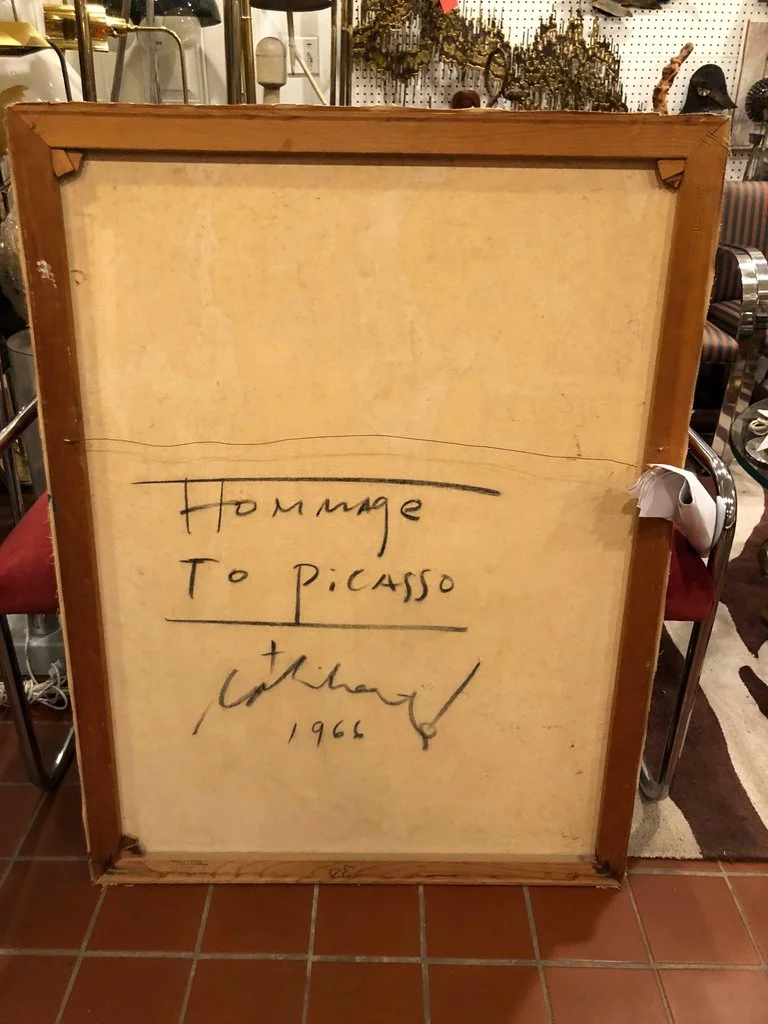 Hommage
To Picasso
1966